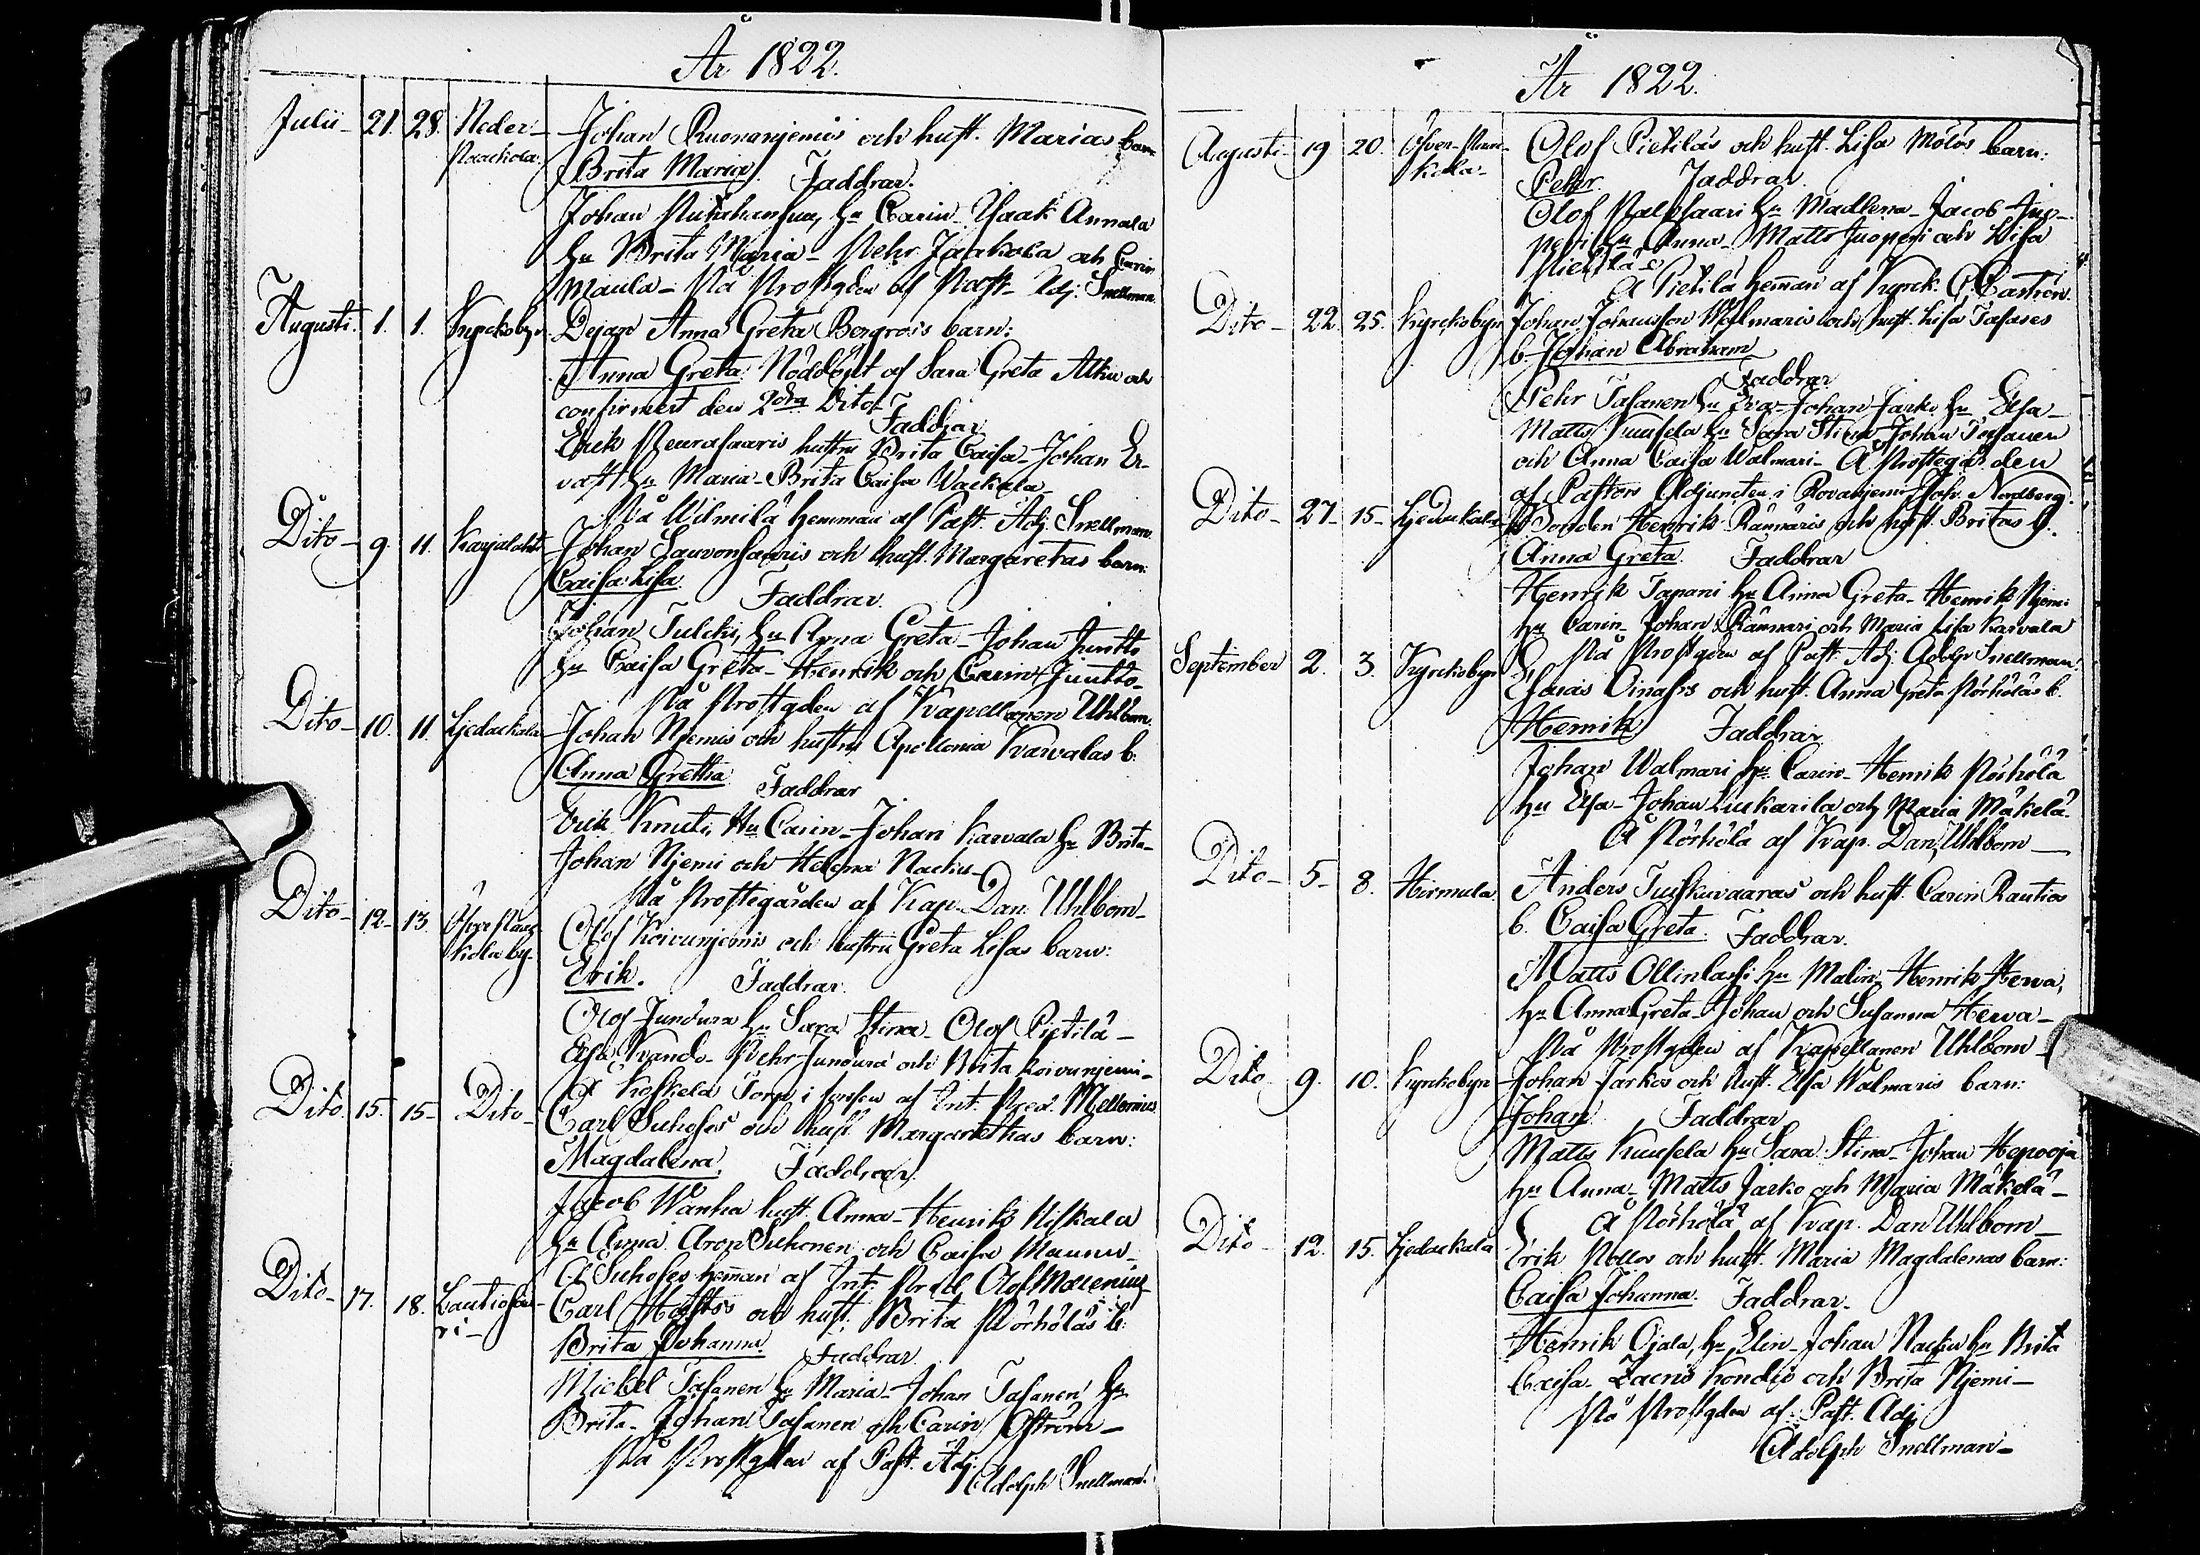 År 1822.
Julii 21. 28. Neder-
Paackola.
Johan Ruonanjemis och hust. Marias barn
Brita Maria Faddrar.
Johan hu Carin Isaak Annala
hu Brita Maria Pehr Jaakola och Carin
Maula På Prostgden af Past. Adj. Snellman.
Augusti. 1. 1. Kyrckobyn
Dejan Anna Greta Bergrois barn:
Anna Greta. Nöddöpt af Sara Greta Alkio och
confirmert den 2dra Dito Faddrar
Erik Peurasaaris hustru Brita Caisa Johan Er-
vast hu Maria Brita Caisa Wackala
På Wilmilä hemman af Past. Adj. Snellman
Dito 9. 11. Karjalahti
Johan Sauvonsaaris och hust. Margaretas barn:
Caisa Lisa Faddrar.
Johan Tulcki hu Anna Greta Johan Juntto
hu Caisa Greta Henrik och Carin Juntto
På Prostgden af Kapellanen Uhlbom.
Dito 10. 11. Ljedackala
Johan Njemis och hustru Apollonia Karvalas b.
Anna Gretha Faddrar
Erik Knuti Hu Carin Johan Karvala hu Brita
Johan Njemi och Helena Nackus
På Prostegården af Kap. Dan. Uhlbom
Dito 12. 13. Öfvre Paac-
kola by.
Olof Koivunjemis och hustru Greta Lisas barn:
Erik. Faddrar.
Olof Jundura hu Sara Stina Olof Pietilä
Elsa Kando Pehr Jundura och Brita Koivunjemi
Å Koskela Torp i forsen af Int. Pred. Mellenius
Dito 15. 15 Dito
Carl Suhoses och hust. Margarethas barn:
Magdalena, Faddrar.
Jacob Wanha hust. Anna Henrik Niskala
hu Anna Aron Suhonen och Caisa Maunu
Å Suhoses hemman af Int. Pred. Olof Mellenius
Dito 17. 18. Lautiosaa-
ri
Carl Hoffrs och hust. Brita Pörhöläs b:
Brita Johanna. Faddrar
Mickel Tasanen hu Maria Johan Tasanen hu
Brita Johan Tasanen och Carin Öström
På Prostgden af Past. Adj.
Adolph Snellman.
År 1822.
Augusti 19 20. Öfver Paac-
kola
Olof Pietiläs och hust. Lisa Mölös barn:
Pehr. Faddrar.
Olof Palosaari hu Madlena Jacob Juo-
peri hu Anna Matts Juoperi och Lisa
Pietilä
Å Pietilä hemman af Kyrck. C. Castrén
Dito 22. 25. Kyrckobyn
Johan Johansson Walmaris och hust. Lisa Tasases
b. Johan Abraham
Faddrar
Pehr Tasanen hu Eva Johan Jarko hu Elsa
Matts Kuusela hu Sara Stina Johan Tasanen
och Anna Caisa Walmari Å Prostegården
af Pastors Adjuncten i Rovanjemi Joh. Nordberg.
Dito 27 15 Ljedackala
Bonden Henrik Rännäris och hust. Britas b.
Anna Greta. Faddrar
Henrik Tapani hu Anna Greta Henrik Njemi
hu Carin Johan Rännäri och Maria Lisa Karvala
På Prostgden af Past. Adj. Adolph Snellman.
September 2. 3. Kyrckobyn
Esaias Oinasis och hust. Anna Greta Pörhöläs b.
Henrik Faddrar.
Johan Walmari hu Carin Henrik Pörhölä
hu Elsa Johan Luckarila och Maria Mäkelä.
Å Pörhölä af Kap. Dan. Uhlbom
Dito 5 8. Hirmula.
Anders Tuiskuvaaras och hust. Carin Rautios
b. Caisa Greta. Faddrar.
Matts Ollinlassi hu Malin Henrik Herva,
hu Anna Greta Johan och Susanna Herva
På Prostgden af Kapellanen Uhlbom
Dito 9. 10. Kyrckobyn
Johan Jarkos och hust. Elsa Walmaris barn:
Johan Faddrar
Matts Kuusela hu Sara Stina Johan Hepooja
hu Anna Matts Jarko och Maria Mäkelä
Å Pörhölä af Kap. Dan Uhlbom
Dito 12. 15. Ljedackala
Erik Nollos och hust. Maria Magdalenas barn:
Caisa Johanna. Faddrar.
Henrik Ojala, hu Elin Johan Nackus hu Brita
Caisa Zacris Kondio och Brita Njemi
På Prostgden af Past. Adj.
Adolph Snellman